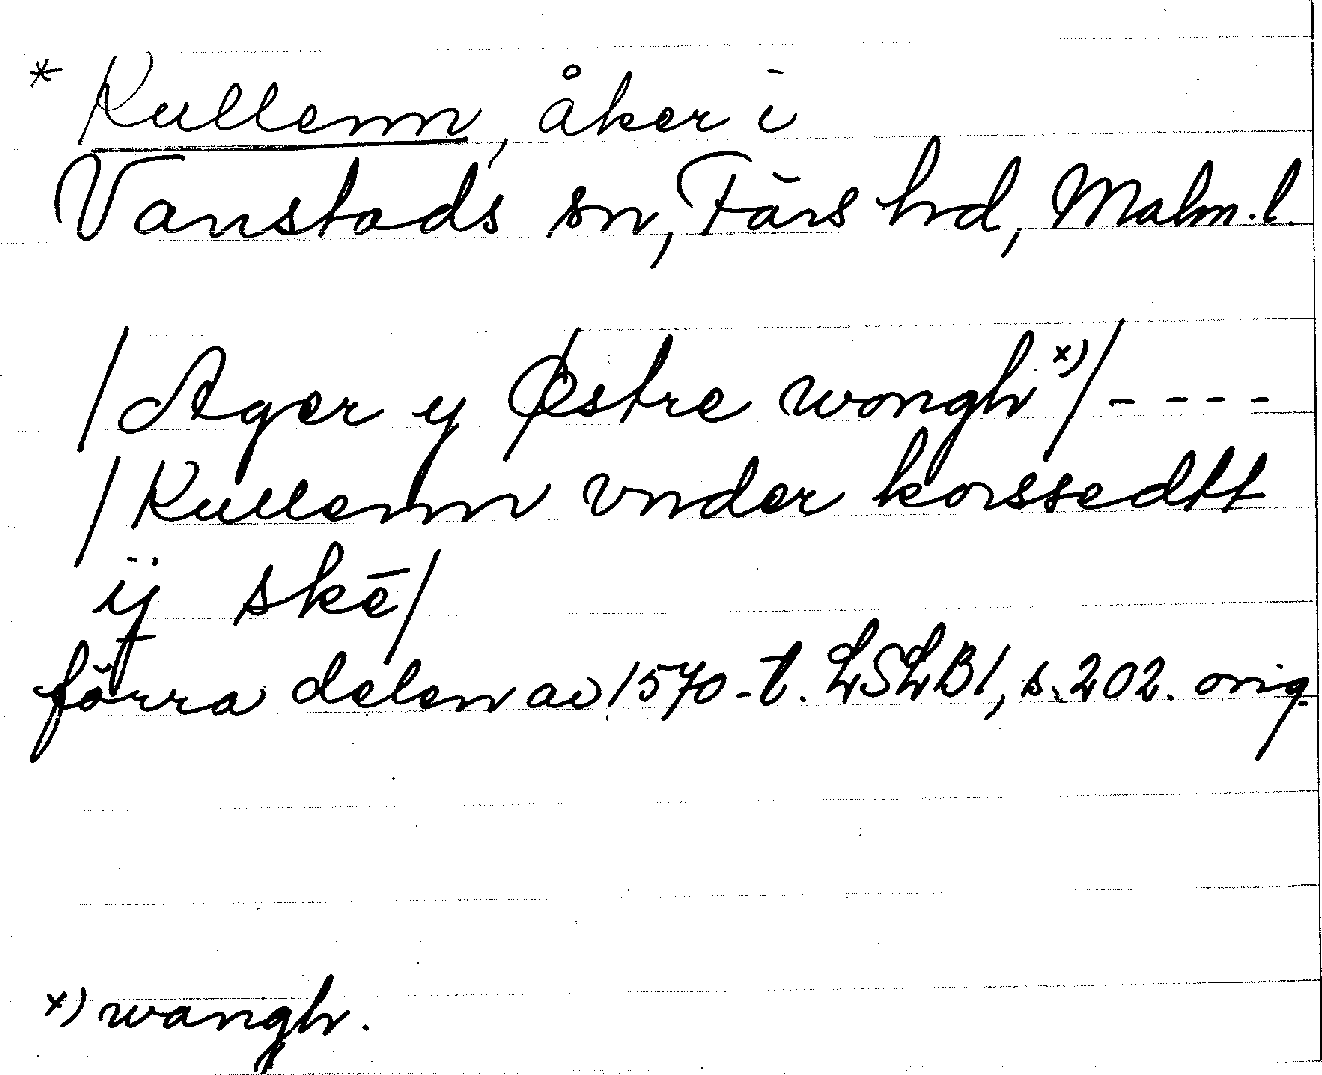 * Kullenn, åker i
Vanstads sn, Färs hrd, Malm.l.
/Ager y Østre wongh x)/ - - - -
/Kullenn vnder korssedtt
ij skē/
förra delen av 1570-t. LSLB1, s. 202. orig.
x) wangh.